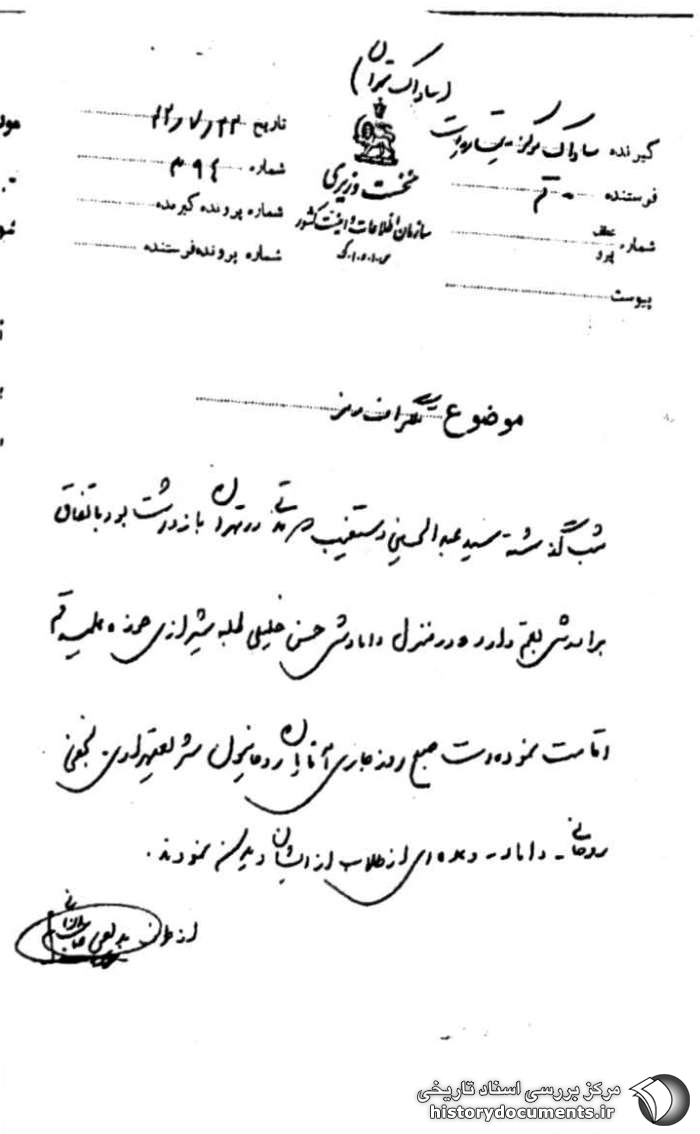 (ساواک تهران)
گیرنده ساواک مرکز - تهران
فرستنده - قم
شماره عطف
پیرو
پیوست
نخست وزیری
سازمان اطلاعات و امنیت کشور
س.ا.و.ا.ک
تاریخ ۴۲/۷/۲۲
شماره ۳۹۴
شماره پرونده گیرنده
شماره پرونده فرستنده
موضوع تلگراف رمز
شب گذشته سید عبدالحسین دستغیب که مدتی در تهران بازداشت بود باتفاق
برادرش بقم وارد و در منزل دامادش حسن خلیلی طلبه شیرازی حوزه علمیه قم
اقامت نموده است صبح روز جاری آقایان روحانیون شریعتمداری - نجفی
روحانی - داماد - و عده ای از طلاب از ایشان دیدن نمودند.
از طرف
مرکز بررسی اسناد تاریخی
historydocuments.ir